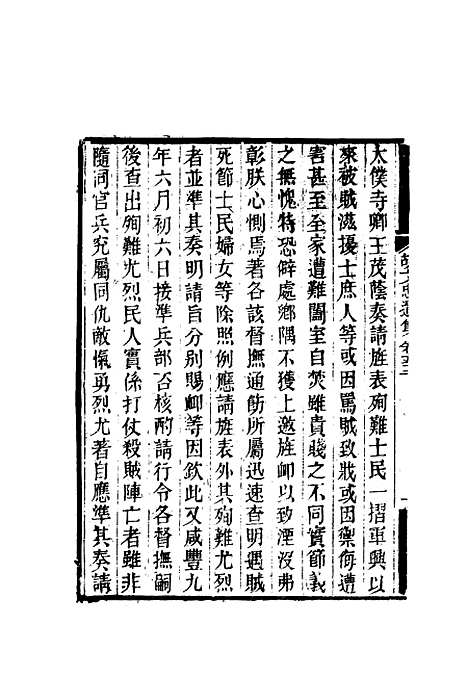 太僕寺卿王茂蔭奏請旌表殉難士民一摺軍興以
來被賊滋擾士庶人等或因罵賊致戕或因禦侮遭
害甚至全家遭難闔室自焚雖貴賤之不同實節義
之無愧特恐僻處鄉隅不獲上邀旌卹以致湮沒弗
彰朕心惻焉著各該督撫通飭所屬迅速查明遇賊
死節士民婦女等除照例應請旌表外其殉難尤烈
者並準其奏明請旨分別賜卹等因欽此又咸豐九
年六月初六日接準兵部咨核酌請行令各督撫嗣
後查出殉難尤烈民人實係打仗殺賊陣亡者雖非
隨同官兵究屬同仇敵愾勇烈尤著自應準其奏請